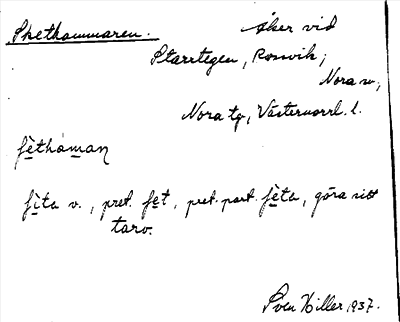 Skethammaren. Åker vid
Starrtegen, Rossvik,
Nora sn,
Nora tg, Västernorrl. l.
fèthàman
fìta v., pret. fet, pret. part. fèta, göra sitt
tarv.
Sven Hiller 1937.